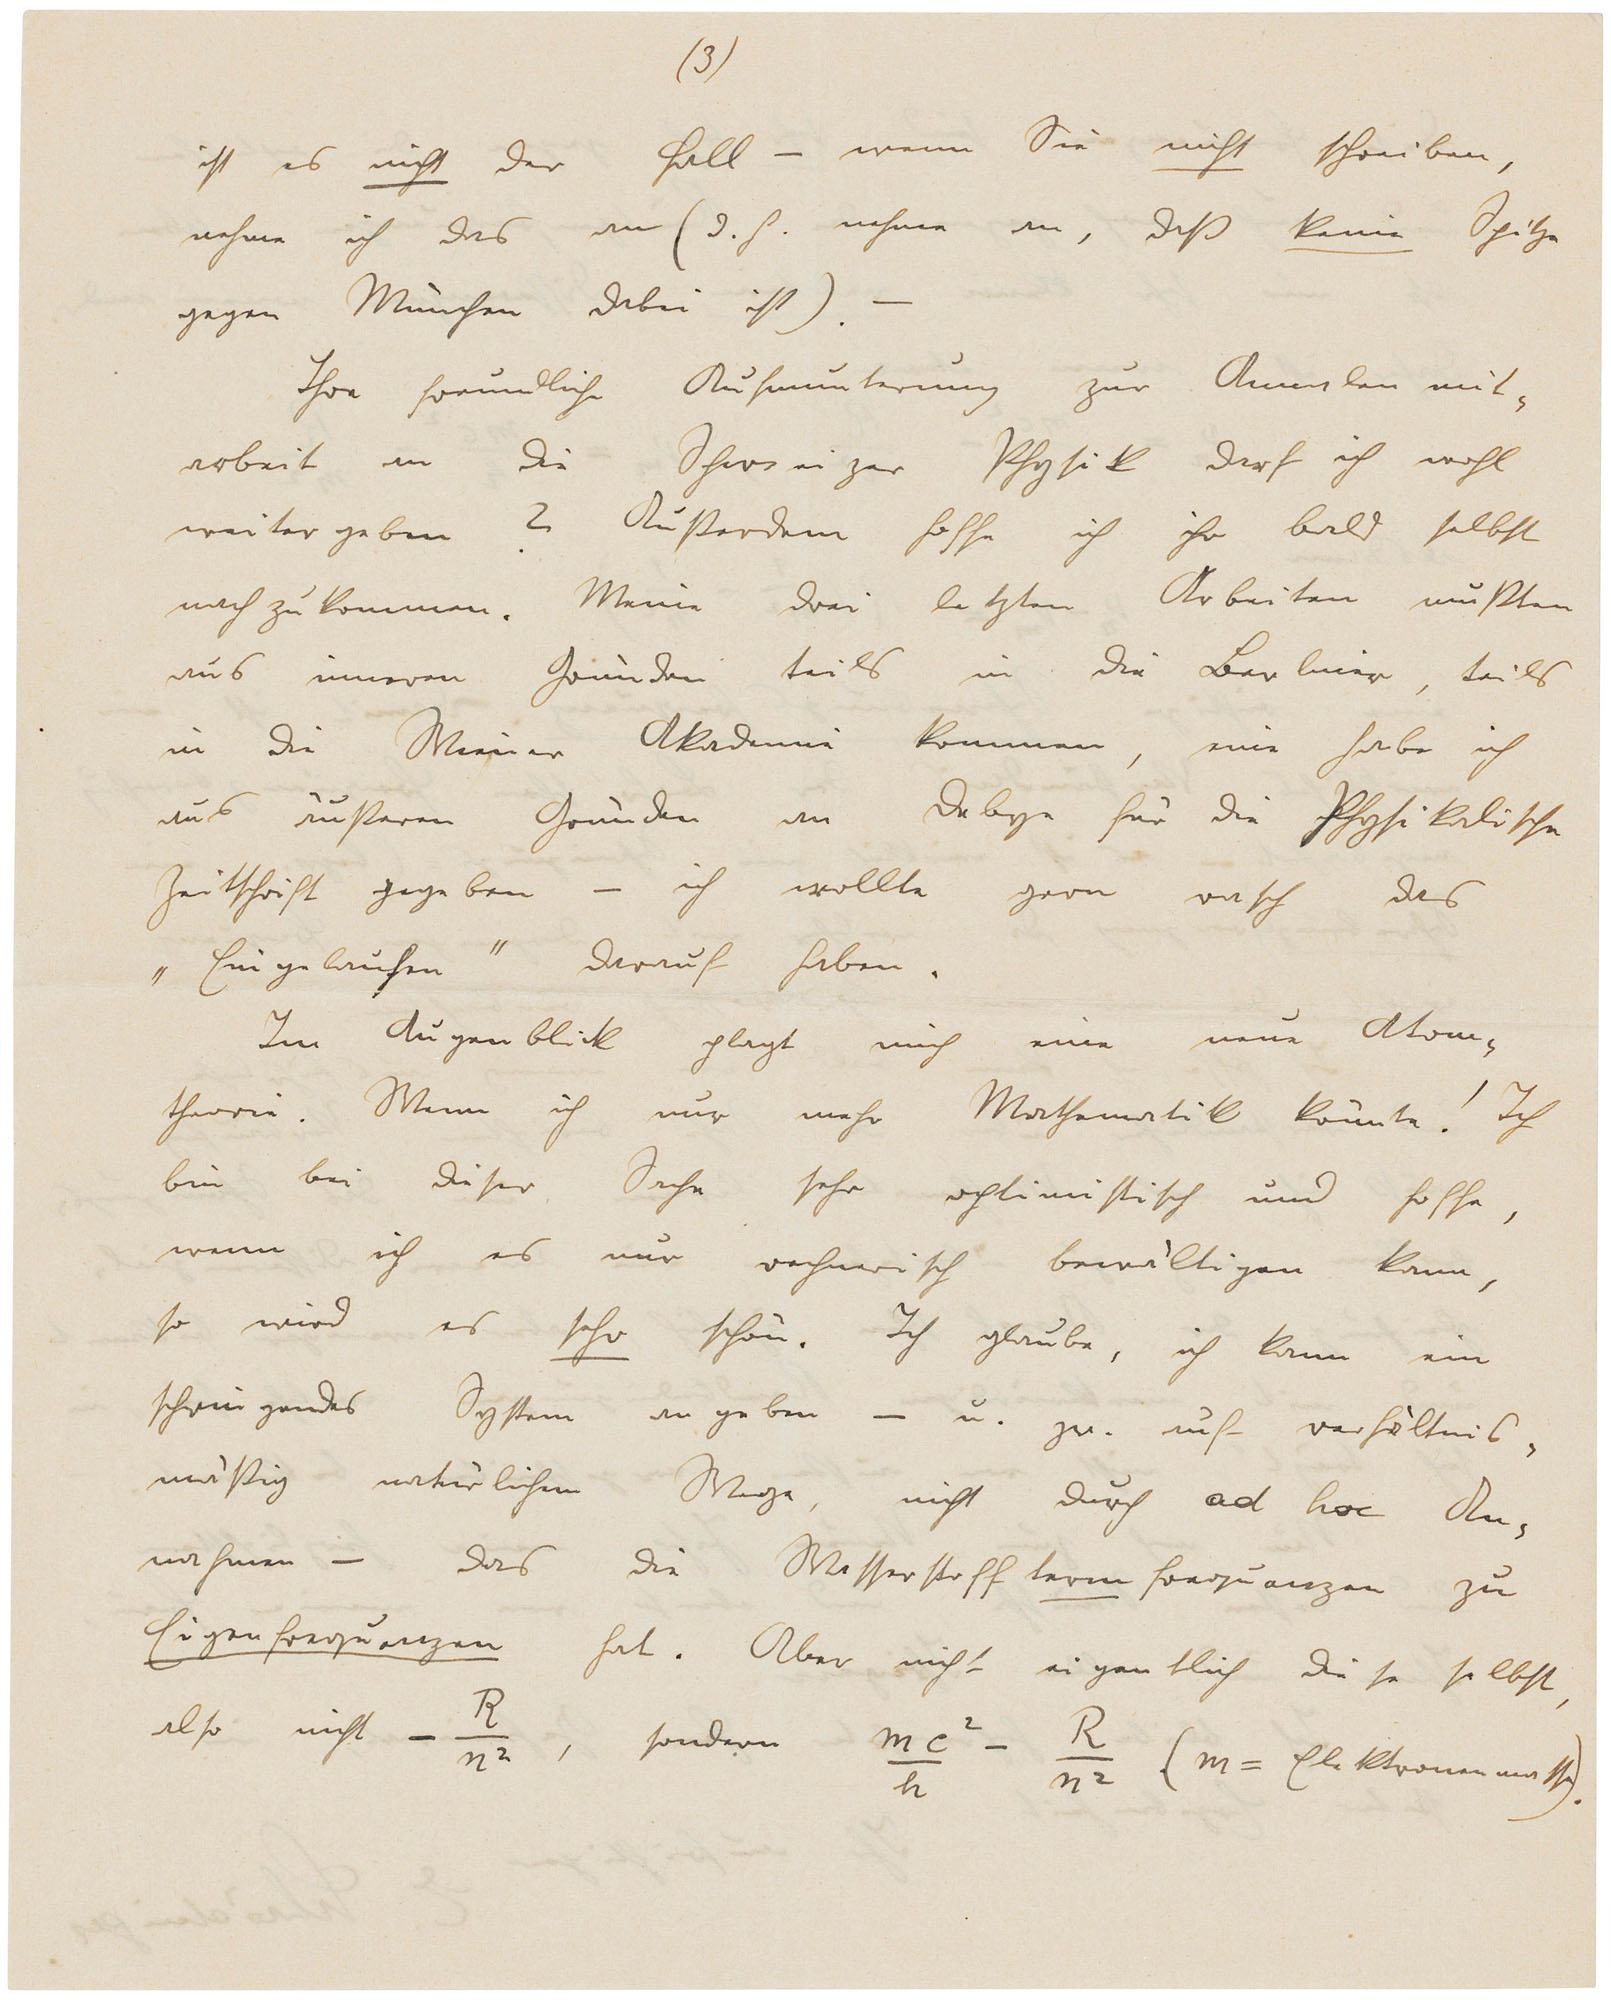 (3)
ist es nicht der Fall – wenn Sie nicht schreiben,
nehme ich das an (d. h. nehme an, daß keine Spitze
gegen München dabei ist). –
Ihre freundliche Aufmunterung zur Annalen mit=
arbeit an die Schweizer Physik darf ich wohl
weitergeben? Außerdem hoffe ich ihr bald selbst
nachzukommen. Meine drei letzten Arbeiten mußten
aus inneren Gründen teils in die Berliner, teils
in die Wiener Akademie kommen, eine habe ich
aus äußeren Gründen an Debye für die Physikalische
Zeitschrift gegeben – ich wollte gern rasch das
„Eingelaufen" darauf haben.
Im Augenblick plagt mich eine neue Atom=
theorie. Wenn ich nur mehr Mathematik könnte! Ich
bin bei dieser Sache sehr optimistisch und hoffe,
wenn ich es nur rechnerisch bewältigen kann,
so wird es sehr schön. Ich glaube, ich kann ein
schwingendes System angeben – u. zw. auf verhältnis=
mäßig natürlichem Wege, nicht durch ad hoc An=
nahmen – das die Wasserstofftermfrequenzen zu
Eigenfrequenzen hat. Aber nicht eigentlich diese selbst,
also nicht – R/n², sondern mc²/h – R/n² (m = Elektronenmasse).